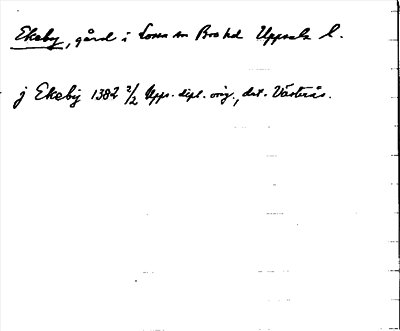 Ekeby, gård i Losa sn Bro hd Uppsala l.
j Ekeby 1382 2/2 Upps. dipl. orig., dat. Västerås.